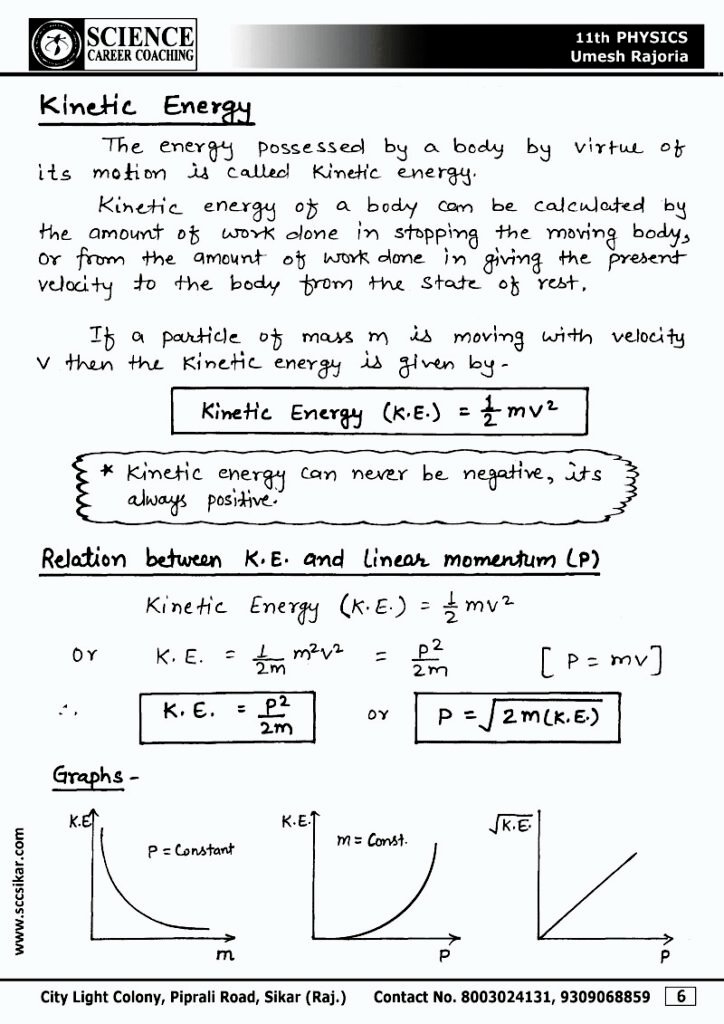 SCIENCE
CAREER COACHING
11th PHYSICS
Umesh Rajoria
Kinetic Energy
The energy possessed by a body by virtue of
its motion is called Kinetic energy.
Kinetic energy of a body can be calculated by
the amount of work done in stopping the moving body,
or from the amount of work done in giving the present
velocity to the body from the state of rest.
If a particle of mass m is moving with velocity
v then the Kinetic energy is given by -
Kinetic Energy (K.E.) = 1/2 mv²
* Kinetic energy can never be negative, its
always positive.
Relation between K.E. and linear momentum (P)
Kinetic Energy (K.E.) = 1/2 mv²
Or K.E. = 1/2m m²v² = P²/2m [P = mv]
∴ K.E. = P²/2m or P = √2m(K.E.)
Graphs -
K.E P = Constant m
K.E. m = Const. P
√K.E. P
www.sccsikar.com
City Light Colony, Piprali Road, Sikar (Raj.) Contact No. 8003024131, 9309068859 6